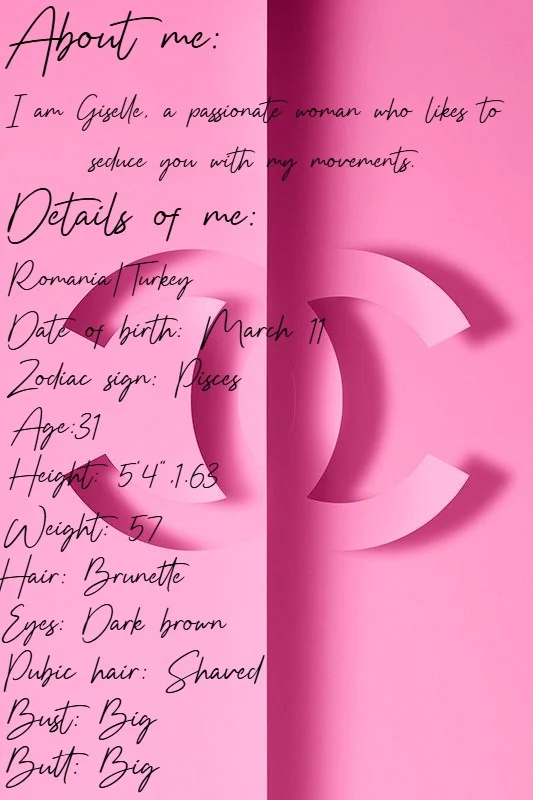 About me:
I am Giselle, a passionate woman who likes to
seduce you with my movements.
Details of me:
Romania/Turkey
Date of birth: March 11
Zodiac sign: Pisces
Age:31
Height: 5'4".1.63
Weight: 57
Hair: Brunette
Eyes: Dark brown
Pubic hair: Shaved
Bust: Big
Butt: Big